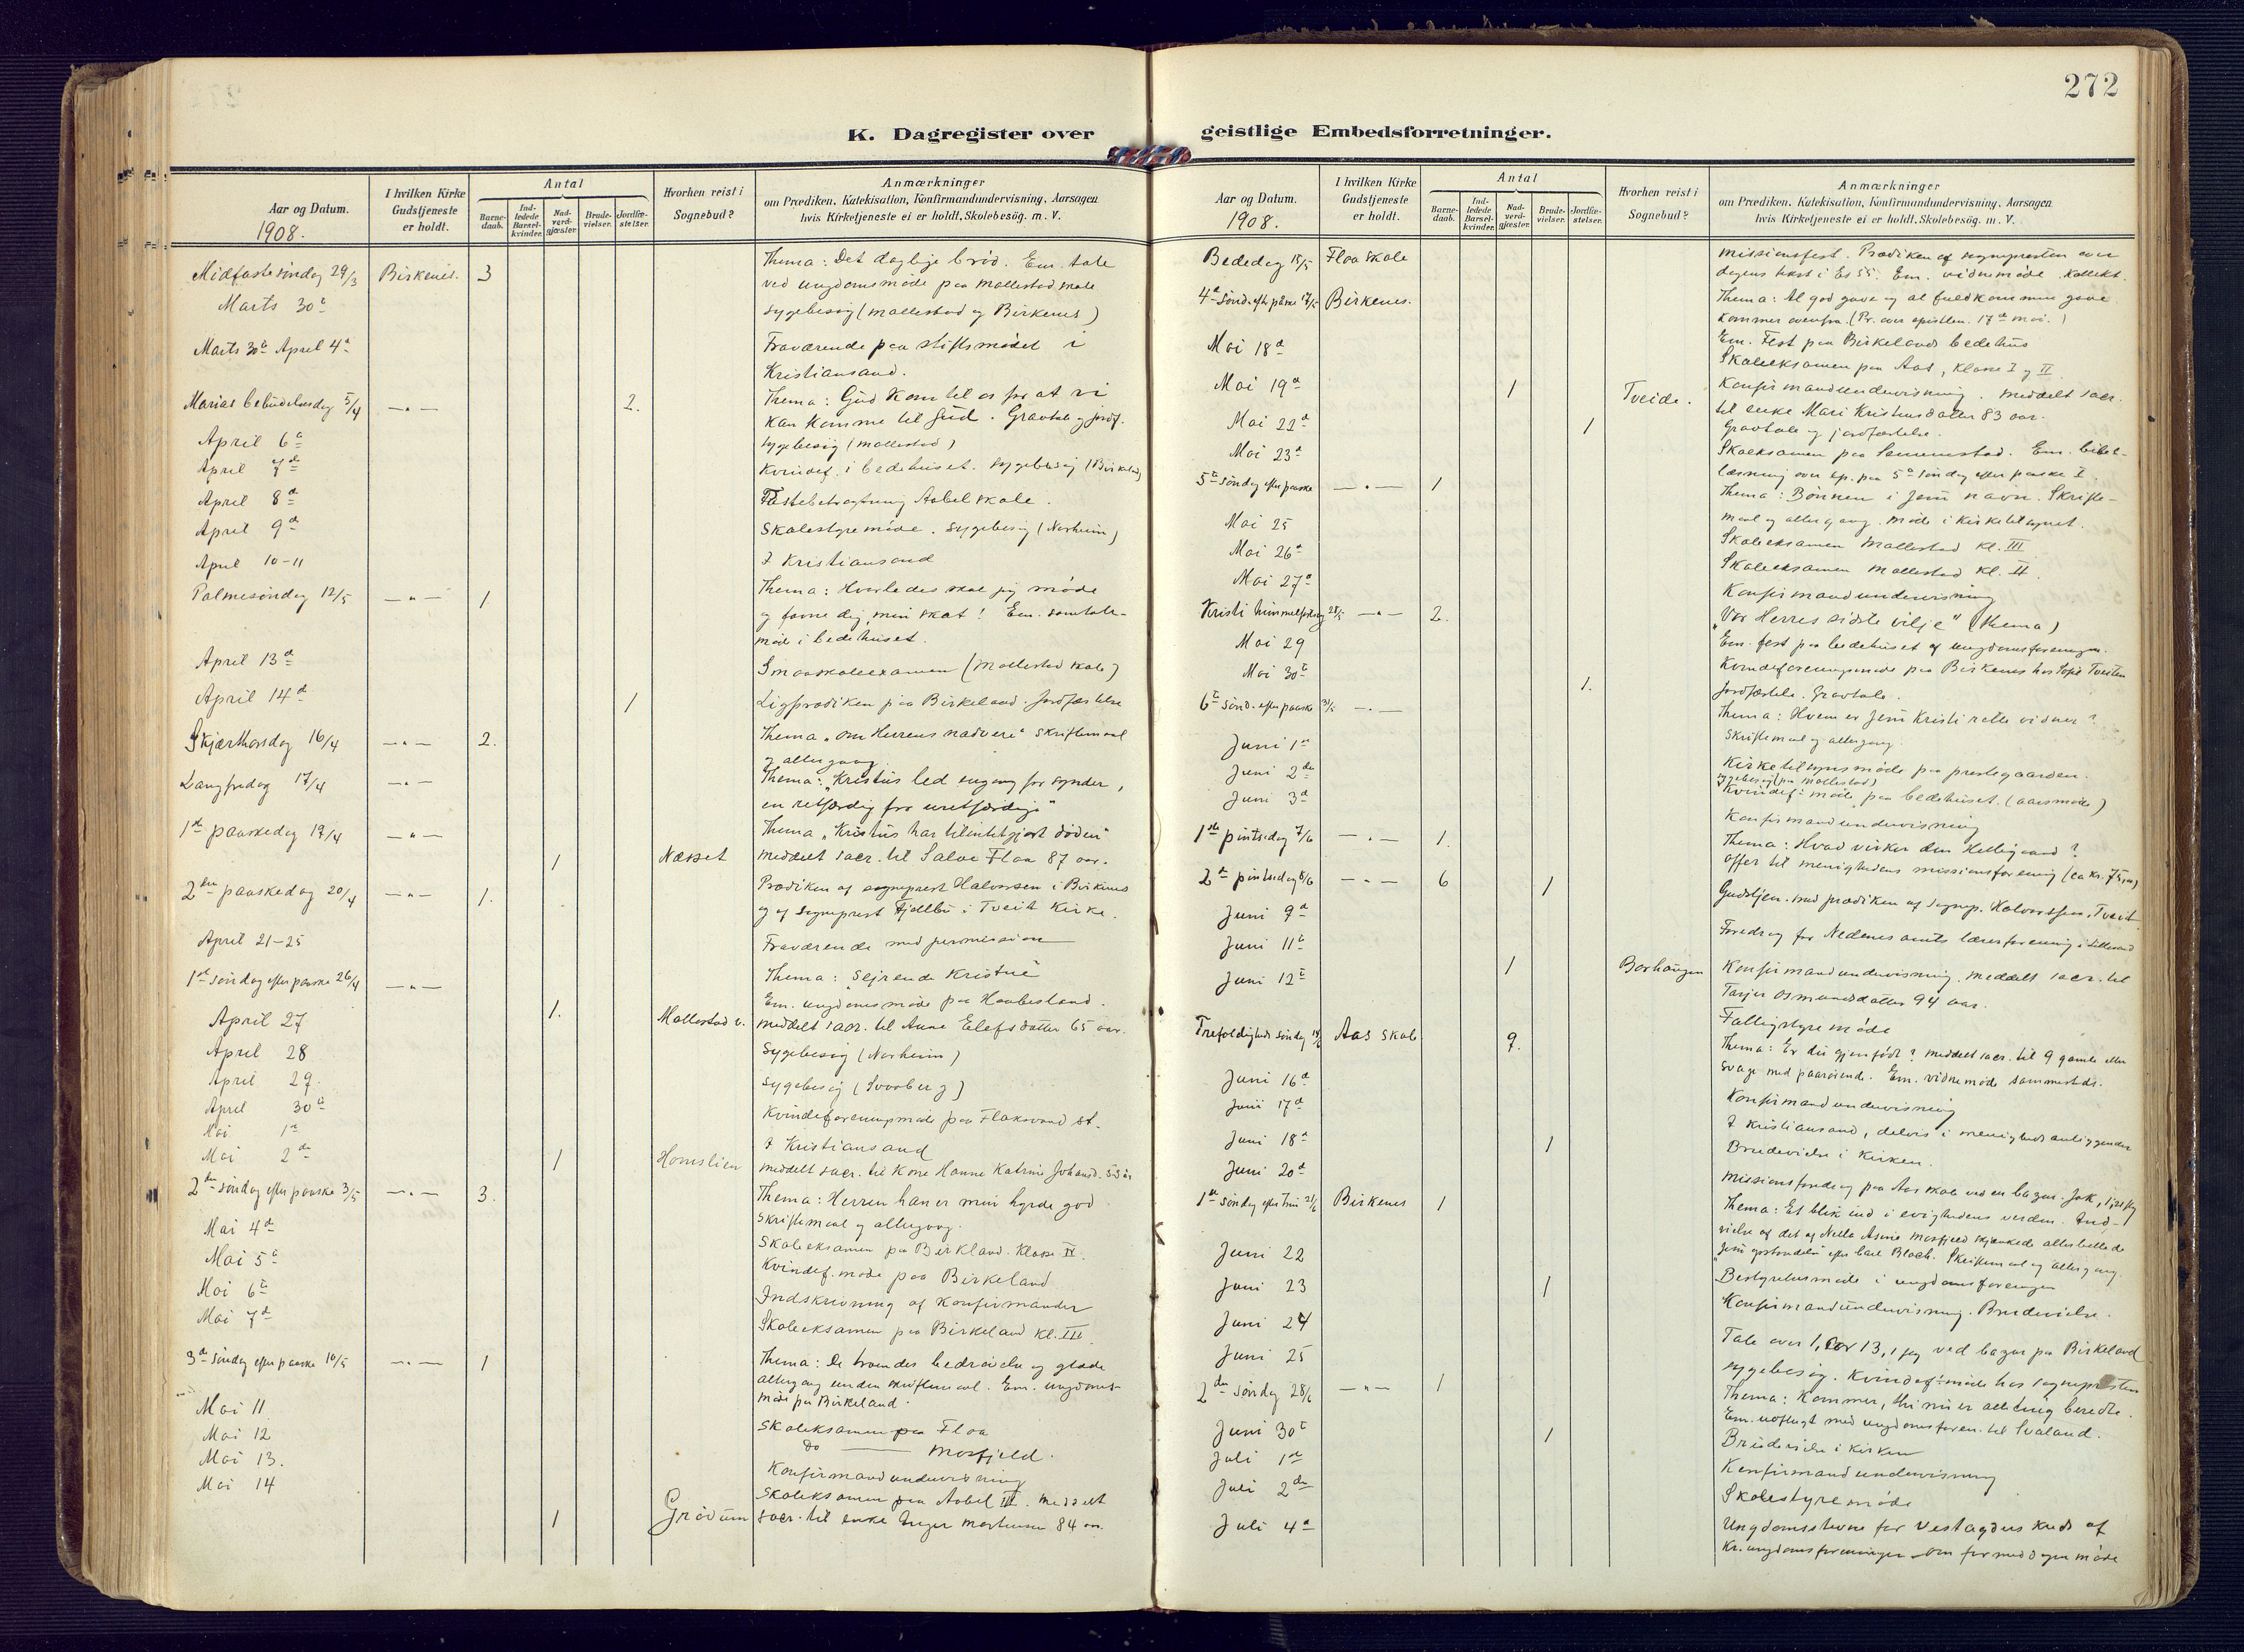 272
K. Dagregister over geistlige Embedsforretninger.
Aar og Datum. 1908.
I hvilken Kirke Gudstjeneste er holdt.
Antal
Barne-daab.
Ind-ledede Barsel-kvinder.
Nad-verd-gjæster.
Brude-vielser.
Jordfæ-stelser.
Hvorhen reist i Sognebud?
Anmærkninger
om Prædiken, Katekisation, Konfirmandundervisning, Aarsagen
hvis Kirketjeneste ei er holdt, Skolebesög. m. V.
Midfastesöndag 29/3 Birkenes. 3 Thema: Det daglige bröd. Em. tale
ved ungdomsmöde paa Mollestad skole
Marts 30te sygebesög (Mollestad og Birkenes)
Marts 30te April 4de Fraværende paa stiftsmödet i
Kristiansand.
Marias bebudelsesdag 5/4 —"— 2. Thema: Gud kom til os for at vi
kan komme til Gud. Gravtale og jordf.
April 6te sygebesög (Mollestad)
April 7de Kvindef. i bedehuset. sygebesög (Birkeland)
April 8de Fastebetragtning Aabel skole.
April 9de Skolestyremöde. sygebesög (Norheim)
April 10-11 I Kristiansand
Palmesöndag 12/5 —"— 1 Thema: Hvorledes skal jeg möde
og favne dig, min skat! Em. samtale-
möde i bedehuset.
April 13de Smaaskoleexamen (Mollestad skole)
April 14de 1 Ligprædiken paa Birkeland. Jordfæstelse
Skjærthorsdag 16/4 —"— 2. Thema "om Herrens nadvere" skriftemaal
og altergang.
Langfredag 17/4 —"— Thema: "Kristus led engang for synder,
en retfærdig for uretfærdige"
1ste paaskedag 19/4 —"— Thema "Kristus har tilintetgjort döden"
1 Næsset meddelt sacr. til Salve Flaa 87 aar.
2den paaskedag 20/4 —"— 1. Prædiken af sogneprest Halvorsen i Birkenes
og af sogneprest Fjellbu i Tveit Kirke.
April 21-25 Fraværende med permission
1ste söndag efter paaske 26/4 —"— Thema: "Sejrende Kristne"
Em. ungdomsmöde paa Haabesland.
April 27 1. Mollestad v. meddelt sacr. til Anne Elefsdatter 65 aar.
April 28 Sygebesög (Norheim)
April 29. Sygebesög (Svaaberg)
April 30te Kvindeforeningsmöde paa Flaksvand st.
Mai 1ste I Kristiansand
Mai 2den 1 Homslien meddelt sacr. til Kone Hanne Katrine Johansd. 53 aar
2den söndag efter paaske 3/5 —"— 3. Thema: Herren han er min hyrde god
Skriftemaal og altergang.
Mai 4de Skoleeksamen paa Birkland. Klasse II.
Mai 5te Kvindef. möde paa Birkeland
Mai 6te Indskrivning af Konfirmander
Mai 7de Skoleeksamen paa Birkeland kl. III.
3de söndag efter paaske 10/5 —"— 1 Thema: De troendes bedrövelse og glæde
altergang uden skriftemaal. Em. ungdoms-
möde paa Birkeland.
Mai 11 Skoleeksamen paa Flaa
Mai 12 do —— Mosfjeld.
Mai 13. Konfirmandundervisning
Mai 14 Skoleeksamen paa Aabel III. meddelt
1 Grödum sacr. til enke Inger Mortensen 84 aar.
Aar og Datum. 1908.
I hvilken Kirke Gudstjeneste er holdt.
Antal
Barne-daab.
Ind-ledede Barsel-kvinder.
Nad-verd-gjæster.
Brude-vielser.
Jordfæ-stelser.
Hvorhen reist i Sognebud?
Anmærkninger
om Prædiken, Katekisation, Konfirmandundervisning, Aarsagen
hvis Kirketjeneste ei er holdt, Skolebesög. m. V.
Bededag 15/5 Flaa skole missionsfest. Prædiken af sognepresten over
dagens tekst i Es 55. Em. vidnemöde. Kollekt.
4de sönd. eft. påske 17/5 Birkenes. Thema: Al god gave og al fuldkommen gave
kommer ovenfra. (Pr. over epistlen. 17de mai.)
Em. Fest paa Birkelands bedehus
Mai 18de Skoleeksamen paa Aas, Klasse I og II
Mai 19de 1 Tveide. Konfirmandundervisning. meddelt sacr.
til enke Mari Kristensdatter 83 aar.
Mai 22de 1 Gravtale og jordfæstelse.
Mai 23de Skoleksamen paa Senumstad. Em. bibel-
læsning over ep. paa 5te söndag efter paaske I.
5te söndag efter paaske —"— 1 Thema: Bönnen i Jesu navn. Skrifte-
maal og altergang. möde i kirketilsynet.
Mai 25 Skoleeksamen Mollestad kl. III
Mai 26de Skoleeksamen Mollestad kl. II.
Mai 27de Konfirmandundervisning
Kristi himmelfartsdag 28/5 —"— 2. "Vor Herres sidste vilje" (thema)
Em. fest paa bedehuset af ungdomsforeningen.
Mai 29 Kvindeforeningsmöde paa Birkenes hos Sofie Tveiten
Mai 30te 1. Jordfæstelse. Gravtale.
6te sönd. efter paaske 31/5 —"— Thema: Hvem er Jesu Kristi rette vidner?
Skriftemaal og altergang.
Juni 1ste Kirketilsynsmöde paa prestegaarden.
Juni 2den sygebesög (paa Mollestad)
Kvindef. möde paa bedehuset. (aarsmöde)
Juni 3de Konfirmandundervisning
1ste pintsedag 7/6 —"— 1. Thema: Hvad virker den Helligaand?
offer til menighedens missionsforening (ca kr. 75,00)
2den pintsedag 8/6 —"— 6 1 Gudstjen. med prædiken af sognep. Halvorssen, Tveit
Juni 9de Foredrag for Nedenes amts lærerforening i Lillesand
Juni 11te 1 Borhaugen Konfirmandundervisning. meddelt sacr. til
Tarjer Osmundsdatter 94 aar.
Juni 12te Fattigstyremöde
Trefoldigheds söndag 14/6 Aas skole 9. Thema: Er du gjenfödt? meddelt sacr. til 9 gamle eller
svage med paarörende. Em. vidnemöde sammesteds.
Juni 16de Konfirmandundervisning
Juni 17de I Kristiansand, delvis i menigheds anliggender
Juni 18de 1 Brudevielse i kirken.
Juni 20de Missionsforedrag paa Aas skole ved en bazar. Jak. 1,
1ste söndag efter trin 21/6 Birkenes 1 Thema: Et blik ind i evighedens verden. Ind-
vielse af det af Nella Asine Mosfjeld skjænkede alterbillede
"Jesu opstandelse" efter Carl Bloch. Skriftemaal og altergang.
Juni 22 Bestyrelsesmöde i ungdomsforeningen
Juni 23 1 Konfirmandundervisning. Brudevielse.
Juni 24 Tale over 1, Cor 13, 1 flg ved bazar paa Birkeland
Juni 25 sygebesög. Kvindef. möde hos sognepresten
2den söndag 28/6 —"— 1 Thema: Kommer, thi nu er alle ting beredte.
Em. udflugt med ungdomsforen. til Svaland.
Juni 30te 1 Brudevielse i kirken
Juli 1ste Konfirmandundervisning
Juli 2den Skolestyremöde
Juli 4de Ungdomsstevne for Vestagders kreds af
Kr. ungdomsforeninger. Om formiddagen möde